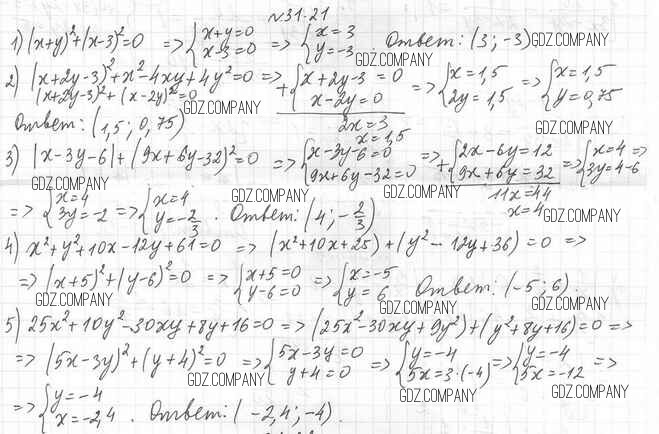 №31.21
1) (x+y)²+(x-3)²=0 => {x+y=0 x-3=0 => {x=3 y=-3. Ответ: (3;-3) GDZ.COMPANY
2) (x+2y-3)²+x²-4xy+4y²=0 => +{x+2y-3=0 x-2y=0 => {x=1,5 2y=1,5 => {x=1,5 y=0,75
(x+2y-3)²+(x-2y)²=0 GDZ.COMPANY GDZ.COMPANY
2x=3
x=1,5
Ответ: (1,5; 0,75) GDZ.COMPANY
3) |x-3y-6|+(9x+6y-32)²=0 => {x-3y-6=0 9x+6y-32=0 => +{2x-6y=12 9x+6y=32 => {x=4 3y=4-6 =>
11x=44
x=4
GDZ.COMPANY GDZ.COMPANY GDZ.COMPANY GDZ.COMPANY
=> {x=4 3y=-2 => {x=4 y=-2/3. Ответ: (4;-2/3)
4) x²+y²+10x-12y+61=0 => (x²+10x+25)+(y²-12y+36)=0 =>
=> (x+5)²+(y-6)²=0 => {x+5=0 y-6=0 => {x=-5 y=6 Ответ: (-5;6).
GDZ.COMPANY GDZ.COMPANY GDZ.COMPANY
5) 25x²+10y²-30xy+8y+16=0 => (25x²-30xy+9y²)+(y²+8y+16)=0 =>
=> (5x-3y)²+(y+4)²=0 => {5x-3y=0 y+4=0 => {y=-4 5x=3·(-4) => {y=-4 5x=-12 =>
GDZ.COMPANY GDZ.COMPANY GDZ.COMPANY
=> {y=-4 x=-2,4. Ответ: (-2,4;-4).